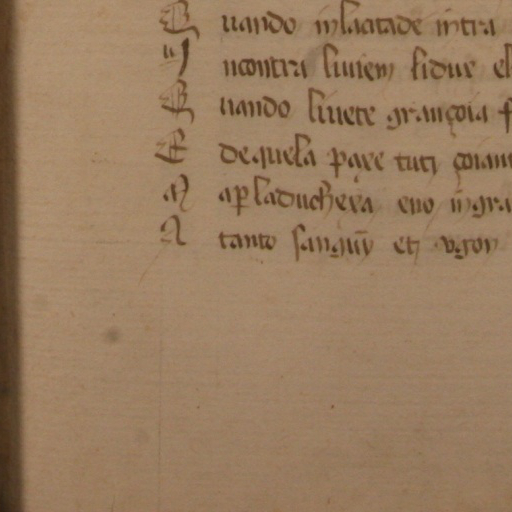 Q uando inlacitade intra
I ncontra liuien lidue el
Q uando liuete grançoia f
E dequela paxe tuti çoian
M a per laduchexa eno in gra
A tanto sanguin et ugon